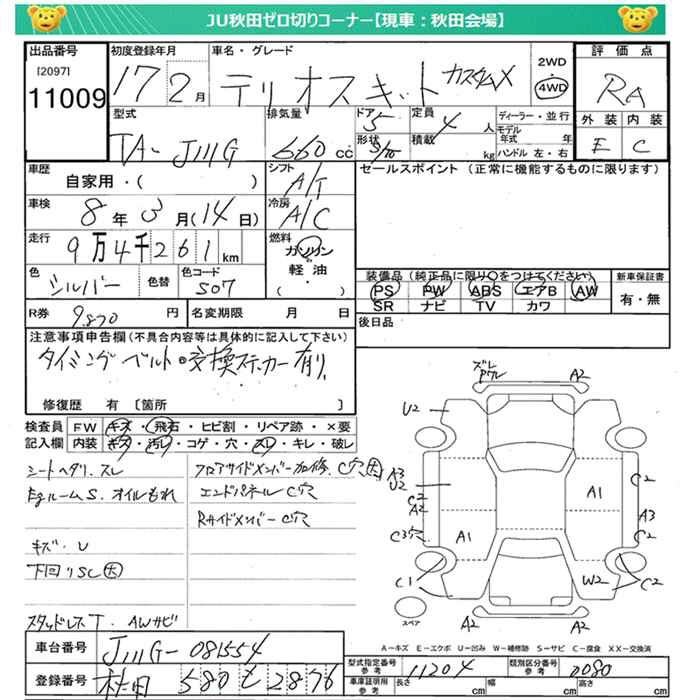 JU秋田ゼロ切りコーナー【現車：秋田会場】
出品番号 初度登録年月 車名・グレード 2WD 4WD 評価点
[2097]
11009 17 2月 テリオスキット カスタムX RA
型式 排気量 ドア 5 定員 4人 ディーラー・並行 外装 内装
TA-J111G 660cc 形状 5/10 積載 kg モデル年式 年 ハンドル 左・右 E C
車歴 自家用・( ) シフト A/T セールスポイント (正常に機能するものに限ります)
車検 8年3月(14日) 冷房 A/C
走行 9万4千261km 燃料 ガソリン 軽油 ( )
色 シルバー 色替 色コード S07
装備品 (純正品に限り○をつけてください) 新車保証書
PS PW ABS エアB AW 有・無
SR ナビ TV カワ
R券 9,870円 名変期限 月 日 後日品
注意事項申告欄(不具合内容等は具体的に記入して下さい)
タイミングベルト交換ステッカー有り
修復歴 有 [箇所 ]
検査員 FW キズ・飛石・ヒビ割・リペア跡・×要
記入欄 内装 キズ・汚レ・コゲ・穴・スレ・キレ・破レ
シートヘタリ、スレ フロアサイドメンバー加修、C穴大
EgルームS、オイルもれ エンドパネルC穴
RサイドメンバーC穴
キズ・U
下回りSC大
スタッドレスT、AWサビ
ズレ
A2
U2
A3
U2
C2
A2
C3穴
C1
A1
A1
C2
A3
C2
W2
C2
A2
A2
スペア
A－キズ E－エクボ U－凹み W－補修跡 S－サビ C－腐食 XX－交換済
車台番号 J111G-081554
登録番号 秋田 580 そ 2876
型式指定番号 参考 11204 類別区分番号 参考 0080
車庫証明用 参考 長さ cm 幅 cm 高さ cm